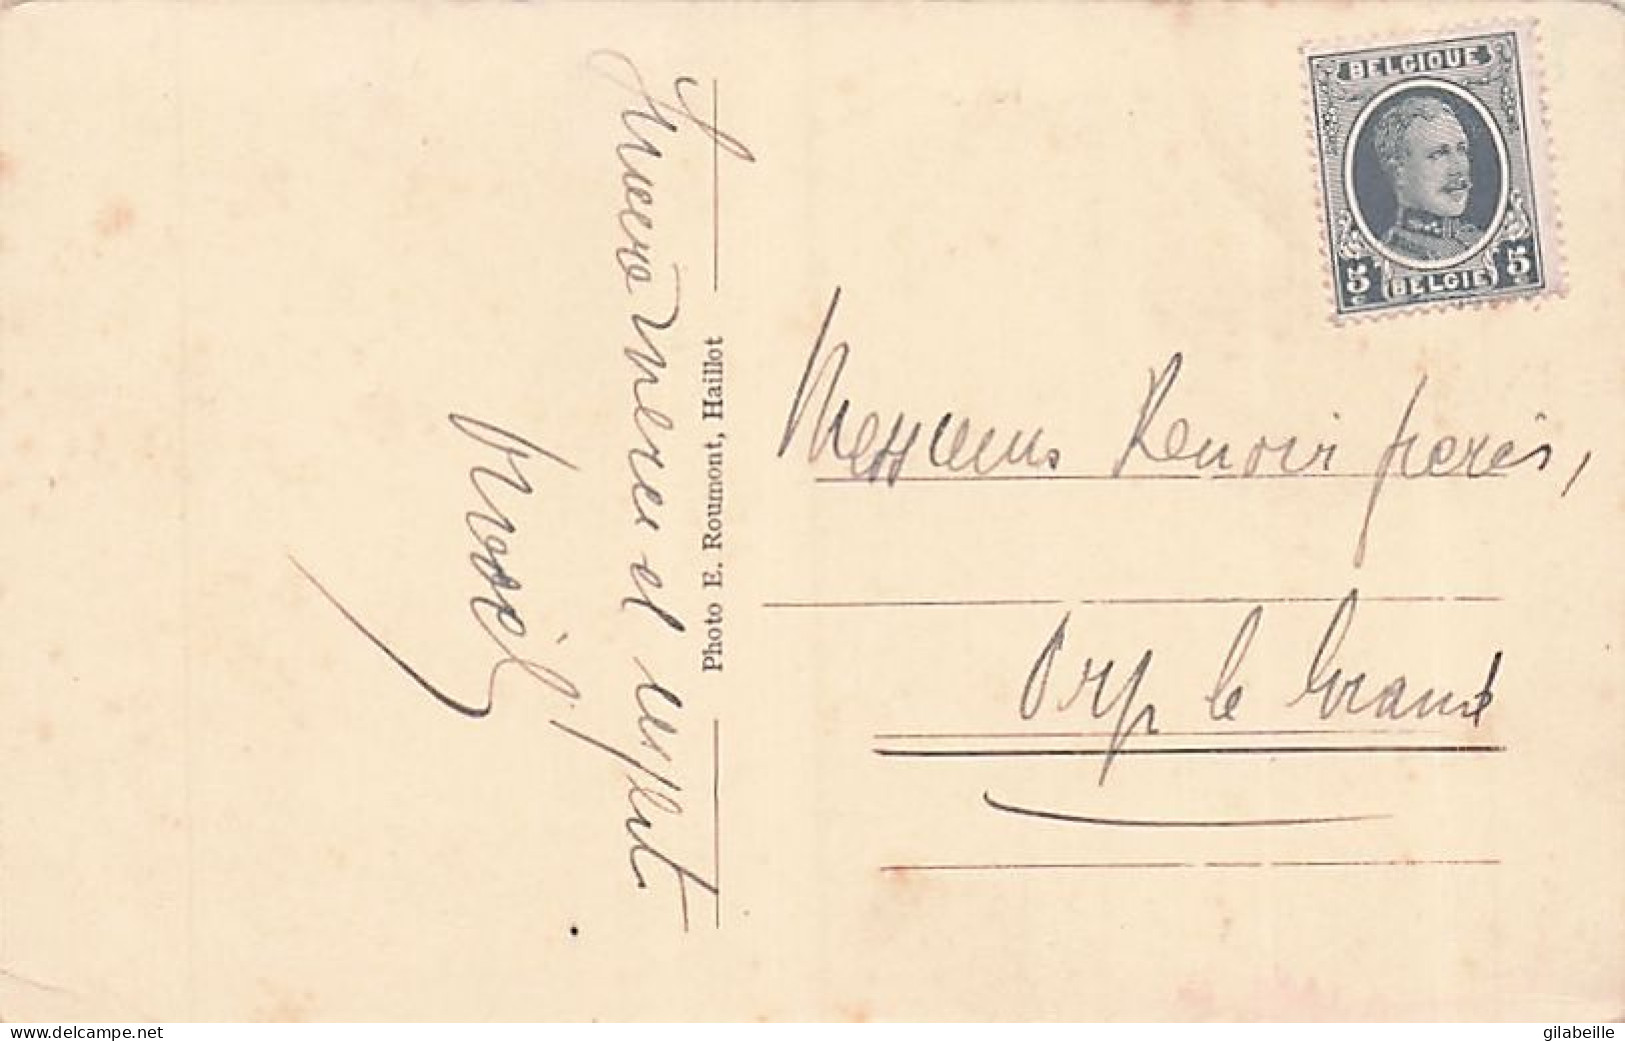 BELGIQUE
5 BELGIE 5
c c
Sincère merci et respect
Photo E. Roumont, Haillot
Messieurs Renoir frères,
Orp le Grand
www.delcampe.net
gilabeille